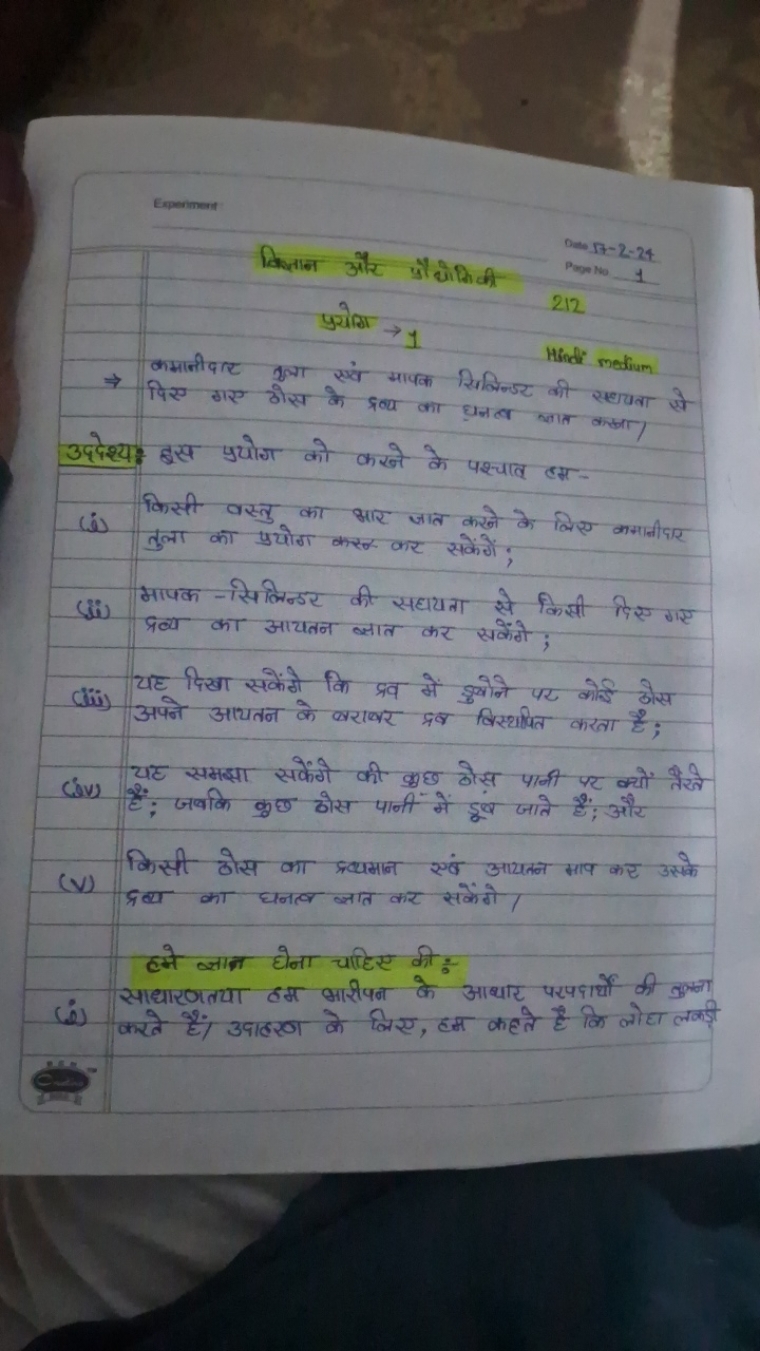 Experiment
Date 17-2-24
Page No. 1
विज्ञान और प्रौद्योगिकी
212
प्रयोग → 1
Hindi medium
⇒ कमानीदार तुला एवं मापक सिलिन्डर की सहायता से
दिए गए ठोस के द्रव्य का घनत्व ज्ञात करना/
उददेश्य: इस प्रयोग को करने के पश्चात हम -
(i) किसी वस्तु का भार ज्ञात करने के लिए कमानीदार
तुला का प्रयोग कर सकेंगें;
(ii) मापक - सिलिन्डर की सहायता से किसी दिए गए
द्रव्य का आयतन ज्ञात कर सकेंगे;
(iii) यह दिखा सकेंगे कि द्रव में डुबोने पर कोई ठोस
अपने आयतन के बराबर द्रव विस्थापित करता है;
(iv) यह समझा सकेंगे की कुछ ठोस पानी पर क्यों तैरते
हैं; जबकि कुछ ठोस पानी में डूब जाते हैं; और
(v) किसी ठोस का द्रव्यमान एवं आयतन माप कर उसके
द्रव्य का घनत्व ज्ञात कर सकेंगे /
हमे ज्ञान होना चाहिए की :
(i) साधारणतया हम भारीपन के आधार परपदार्थो की तुलना
करते हैं/ उदाहरण के लिए, हम कहते है कि लोहा लकड़ी